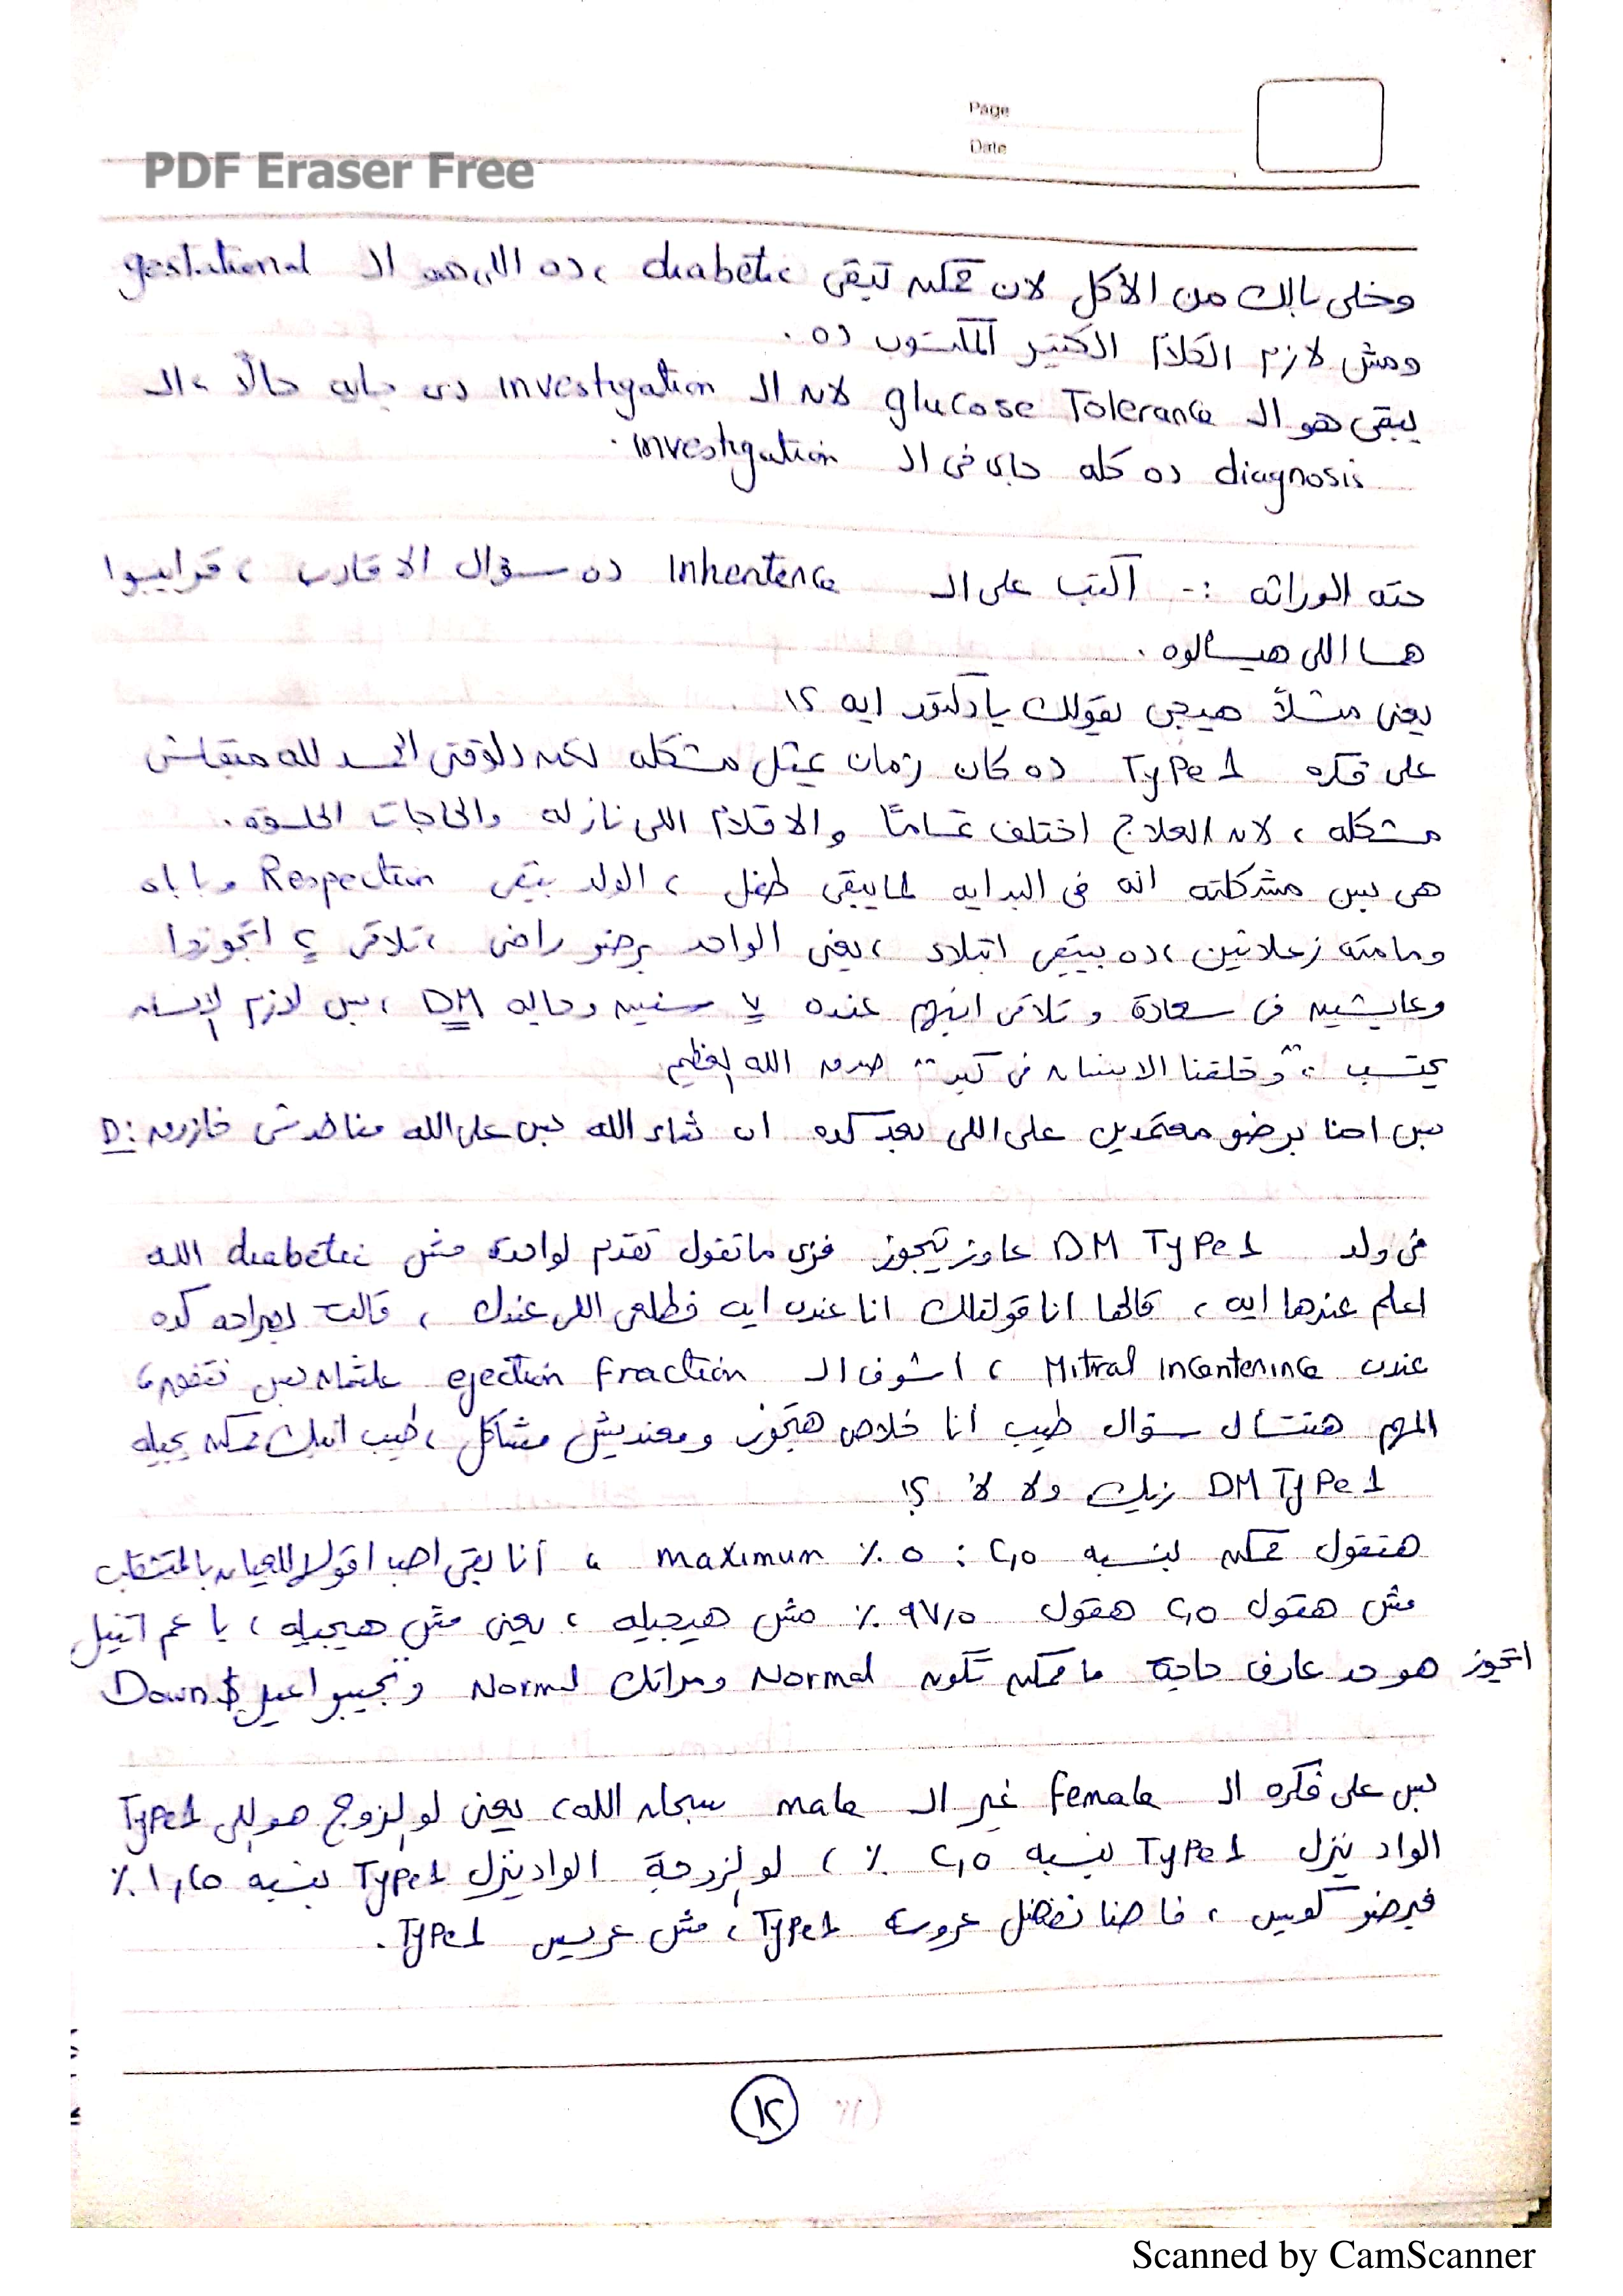 Page
Date
PDF Eraser Free
وخلى بالك من الأكل لان ممكن تبقى diabetic ، ده اللى هو الـ gestational
ومش لازم الكلام الكتير المكتوب ده .
يبقى هو الـ glucose Tolerance لان الـ investigation دى جايه حالاً ، الـ
diagnosis ده كله جاى فى الـ investigation .
حته الوراثه :- أكتب على الـ Inheritence ده سؤال الاقارب ، قرايبوا
هما اللى هيسألوه .
يعنى مثلاً هيجى يقولك يا دكتور ايه ؟!
على فكره Type 1 ده كان زمان يمثل مشكله لكن دلوقتى الحمد لله مبقاش
مشكله ، لان العلاج اختلف تماماً والاقلام اللى نازله والحاجات الحلوه .
هى بس مشكلته انه فى البدايه لما يبقى طفل ، الولد بيبقى وباباه
ومامته زعلانين ، ده بيبقى ابتلاء ، يعنى الواحد برضو راضى ، تلاقى ٢ اتجوزوا
وعايشين فى سعادة و تلاقى ابنهم عنده ٧ سنين وجايله DM ، بس لازم الإنسان
يحتسب ، " وخلقنا الانسان فى كبد " صدق الله العظيم
بس احنا برضو معتمدين على اللى بعد كده ان شاء الله بس على الله مناخدش خازوق :D
فى ولد DM Type 1 عاوز يتجوز فزى ما تقول تقدم لواحدة مش diabetic الله
اعلم عندها ايه ، قالها انا قولتلك انا عندى ايه فطلعى اللى عندك ، قالت بصراحه كده
عندى Mitral incontenince ، اشوف الـ ejection fraction علشان بس نتفهم
المهم هتتسأل سؤال طيب أنا خلاص هتجوز ومعنديش مشاكل ، طيب ابنك ممكن يجيله
DM Type 1 زيك ولا لأ ؟!
هتقول ممكن بنسبه ٢,٥ : ٥ % maximum ، أنا بقى احب اقولها للعيان بالمتشقلب
مش هقول ٢,٥ هقول ٩٧,٥ % مش هيجيله ، يعنى مش هيجيله ، يا عم اتنيل
اتجوز هو حد عارف حاجة ما ممكن تكون Normal ومراتك Normal وتجيبوا عيل Down $
بس على فكره الـ female غير الـ male سبحان الله ، يعنى لو الزوج هو اللى Type 1
الواد ينزل Type 1 بنسبه ٢,٥ % ، لو الزوجة الواد ينزل Type 1 بنسبه ١,٢٥ %
فبرضو كويس ، فاحنا نفضل عروسة Type 1 ، مش عريس Type 1 .
١٢
Scanned by CamScanner